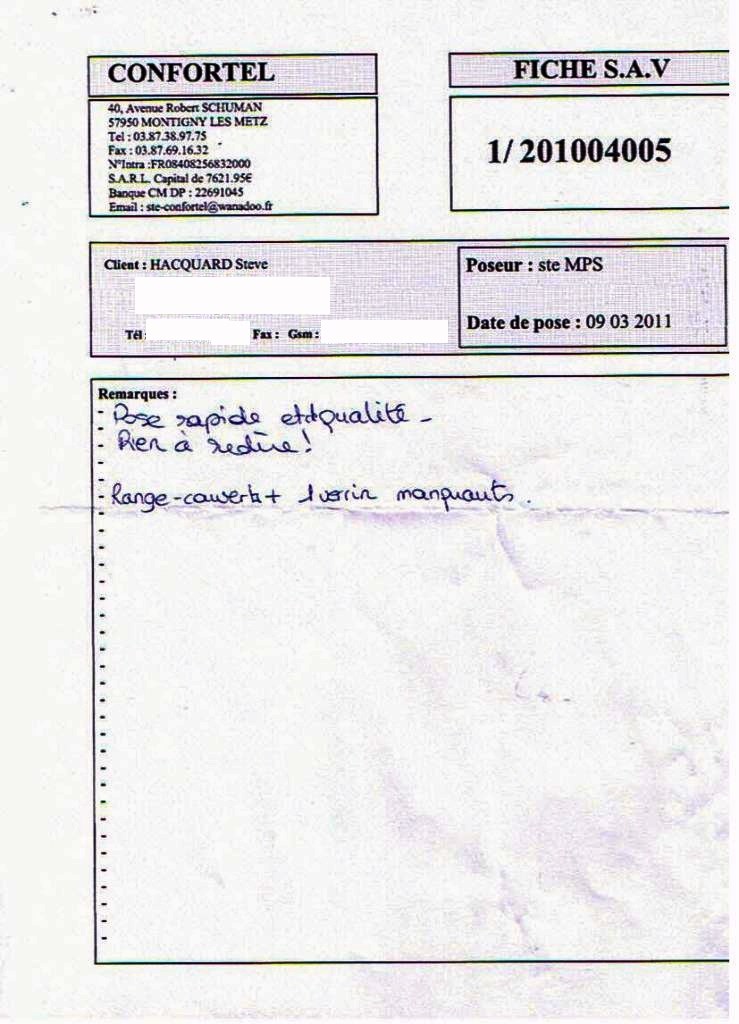 CONFORTEL
40, Avenue Robert SCHUMAN
57950 MONTIGNY LES METZ
Tel : 03.87.38.97.75
Fax : 03.87.69.16.32
N°Intra :FR08408256832000
S.A.R.L. Capital de 7621.95€
Banque CM DP : 22691045
Email : ste-confortel@wanadoo.fr
FICHE S.A.V
1/ 201004005
Client : HACQUARD Steve
Tél : Fax : Gsm :
Poseur : ste MPS
Date de pose : 09 03 2011
Remarques :
- Pose rapide et qualité -
- Rien à redire !
-
- Range-couverts + 1 verin manquants.